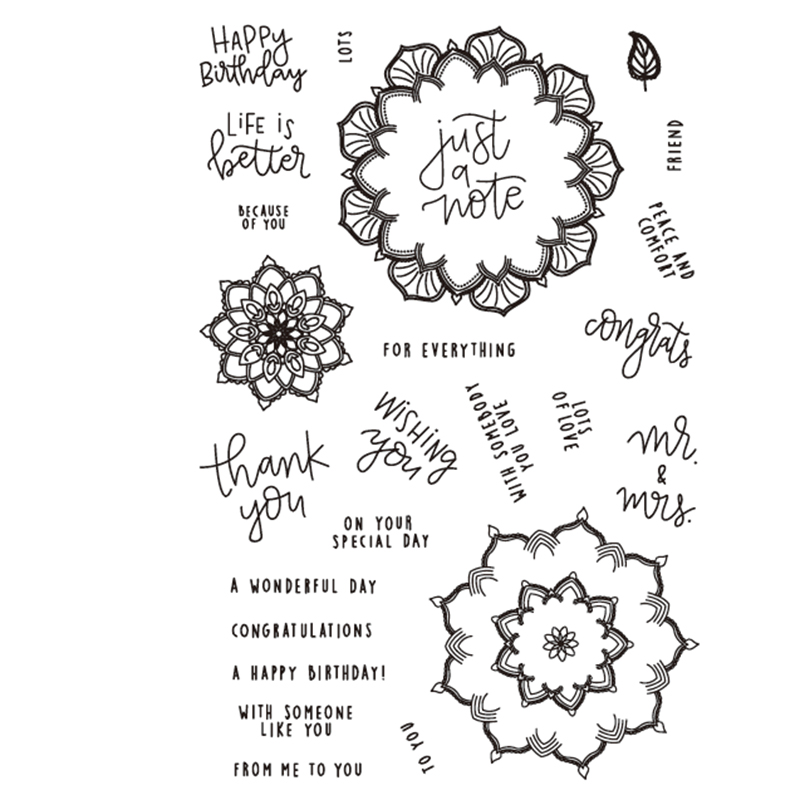 HAPPY
Birthday
LOTS
LIFE IS
better
BECAUSE
OF YOU
just
a
note
FRIEND
PEACE AND
COMFORT
congrats
FOR EVERYTHING
WISHING
you
WITH SOMEBODY
YOU LOVE
LOTS
OF LOVE
mr.
&
mrs.
thank
you
ON YOUR
SPECIAL DAY
A WONDERFUL DAY
CONGRATULATIONS
A HAPPY BIRTHDAY!
WITH SOMEONE
LIKE YOU
FROM ME TO YOU
TO YOU